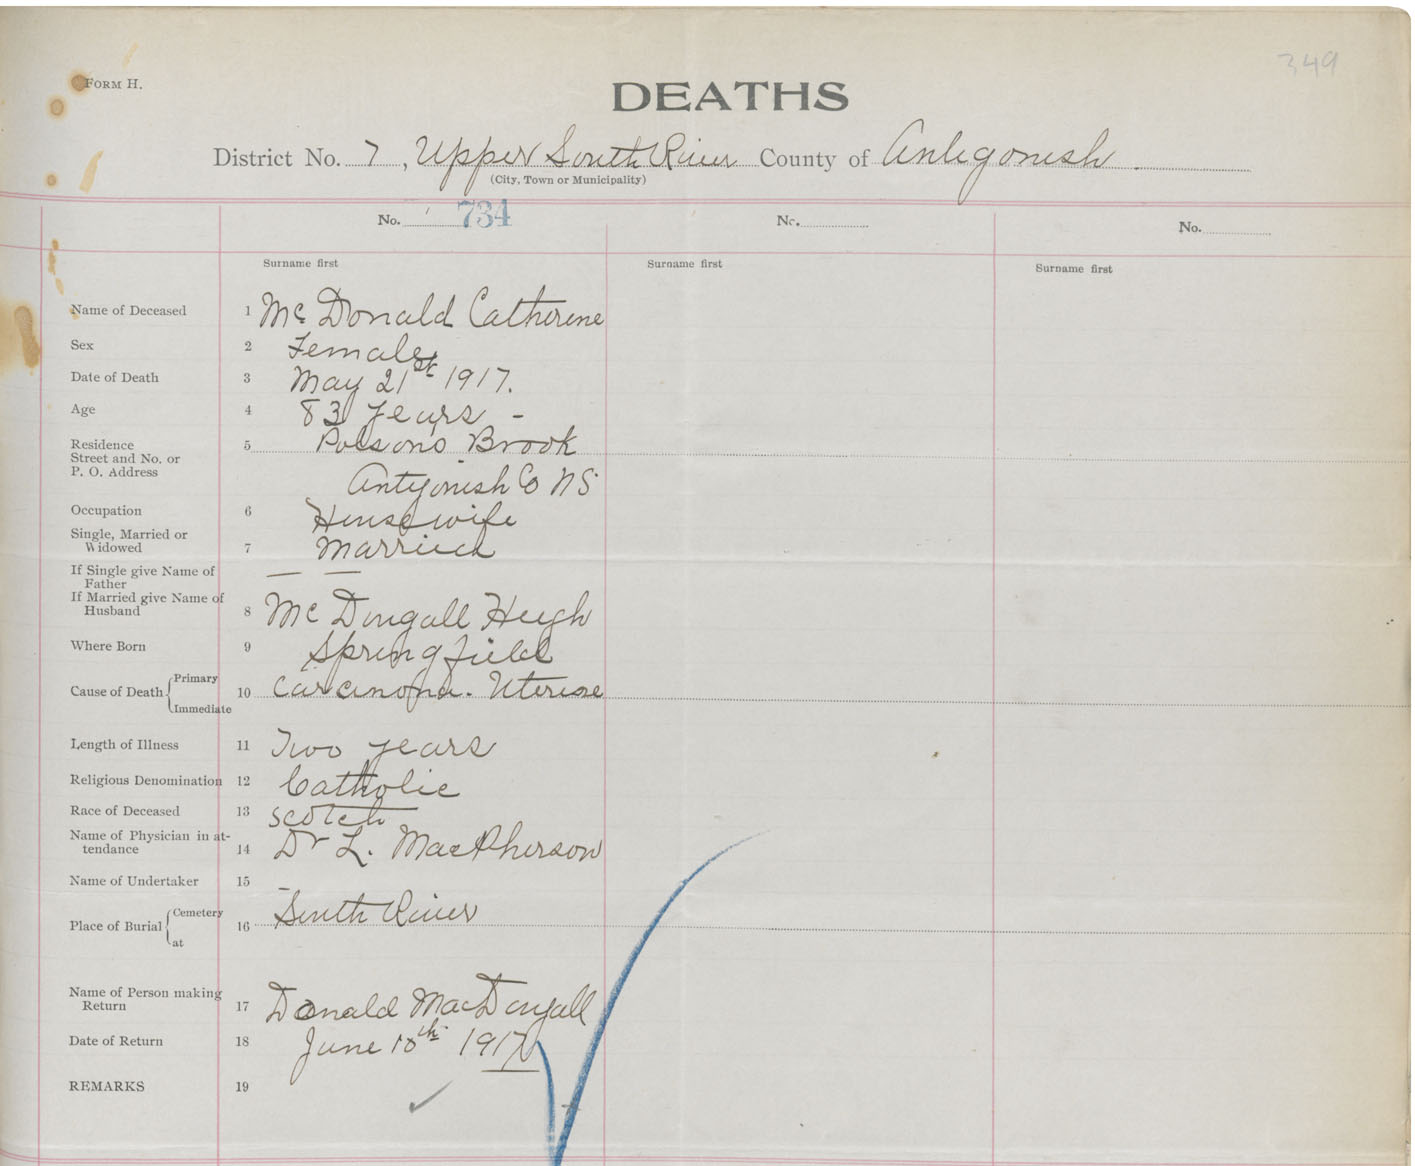 349
FORM H.
DEATHS
District No. 7, Upper South River County of Antigonish
(City, Town or Municipality)
No. 734 No. No.
Surname first Surname first Surname first
Name of Deceased 1 Mc Donald Catherine
Sex 2 Female
Date of Death 3 May 21st 1917.
Age 4 83 years -
Residence 5 Polsons Brook
Street and No. or
P. O. Address
Antigonish Co NS
Occupation 6 Housewife
Single, Married or
Widowed 7 Married
If Single give Name of — —
Father
If Married give Name of
Husband 8 Mc Dougall Hugh
Where Born 9 Springfield
Primary
Cause of Death 10 Carcinoma. Uterine
Immediate
Length of Illness 11 Two years
Religious Denomination 12 Catholic
Race of Deceased 13 Scotch
Name of Physician in at-
tendance 14 Dr L. MacPherson
Name of Undertaker 15 –
Cemetery South River
Place of Burial 16
at
Name of Person making
Return 17 Donald MacDougall
Date of Return 18 June 18th 1917
REMARKS 19